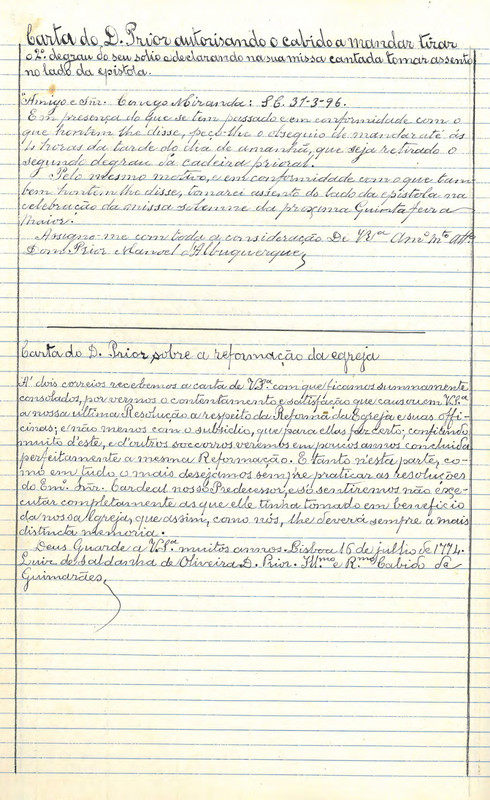 Carta do D. Prior autorisando o cabido a mandar tirar
o 2º degrau do seu solio e declarando na sua missa cantada tomar assento
no lado da epistola.
"Amigo e Snr. Conego Miranda: S.C. 31-3-96.
Em presença do que se tem passado e em conformidade com o
que hontem lhe disse, peço-lhe o obsequio de mandar até ás
4 horas da tarde do dia de amanhã, que seja retirado o
segundo degrau da cadeira prioral.
Pelo mesmo motivo, e em conformidade com o que tam
bem hontem lhe disse, tomarei assento do lado da epistola na
celebração da missa solemne da proxima Quinta feira
maior.
Assigno-me com toda a consideração De V.Sª Amº mtº attº
Dom Prior Manoel d'Albuquerque,
Carta do D. Prior, sobre a reformação da egreja
A' dois correios recebemos a carta de V.Sª com que ficamos summamente
consolados, por vermos o contentamento e satisfação que causou em V.Sª
a nossa ultima Resolução a respeito da Reforma da Egreja e suas offi-
cinas; e não menos com o subsidio, que para ellas faz certo; confiando
muito d'este, e d'outros soccorros veremos em poucos annos concluida
perfeitamente a mesma Reformação. E tanto n'esta parte, co-
mo em tudo o mais desejamos sempre praticar as resoluções
do Emº Snr. Cardeal nosso Predecessor, e só sentiremos não exe-
cutar completamente as que elle tinha tomado em beneficio
da nossa Egreja, que assim, como nós, lhe deverá sempre a mais
distincta memoria.
Deus Guarde a V.Sª muitos annos. Lisboa 16 de julho de 1774.
Luiz de Saldanha de Oliveira D. Prior. Illmo e Rmo Cabido de
Guimarães,